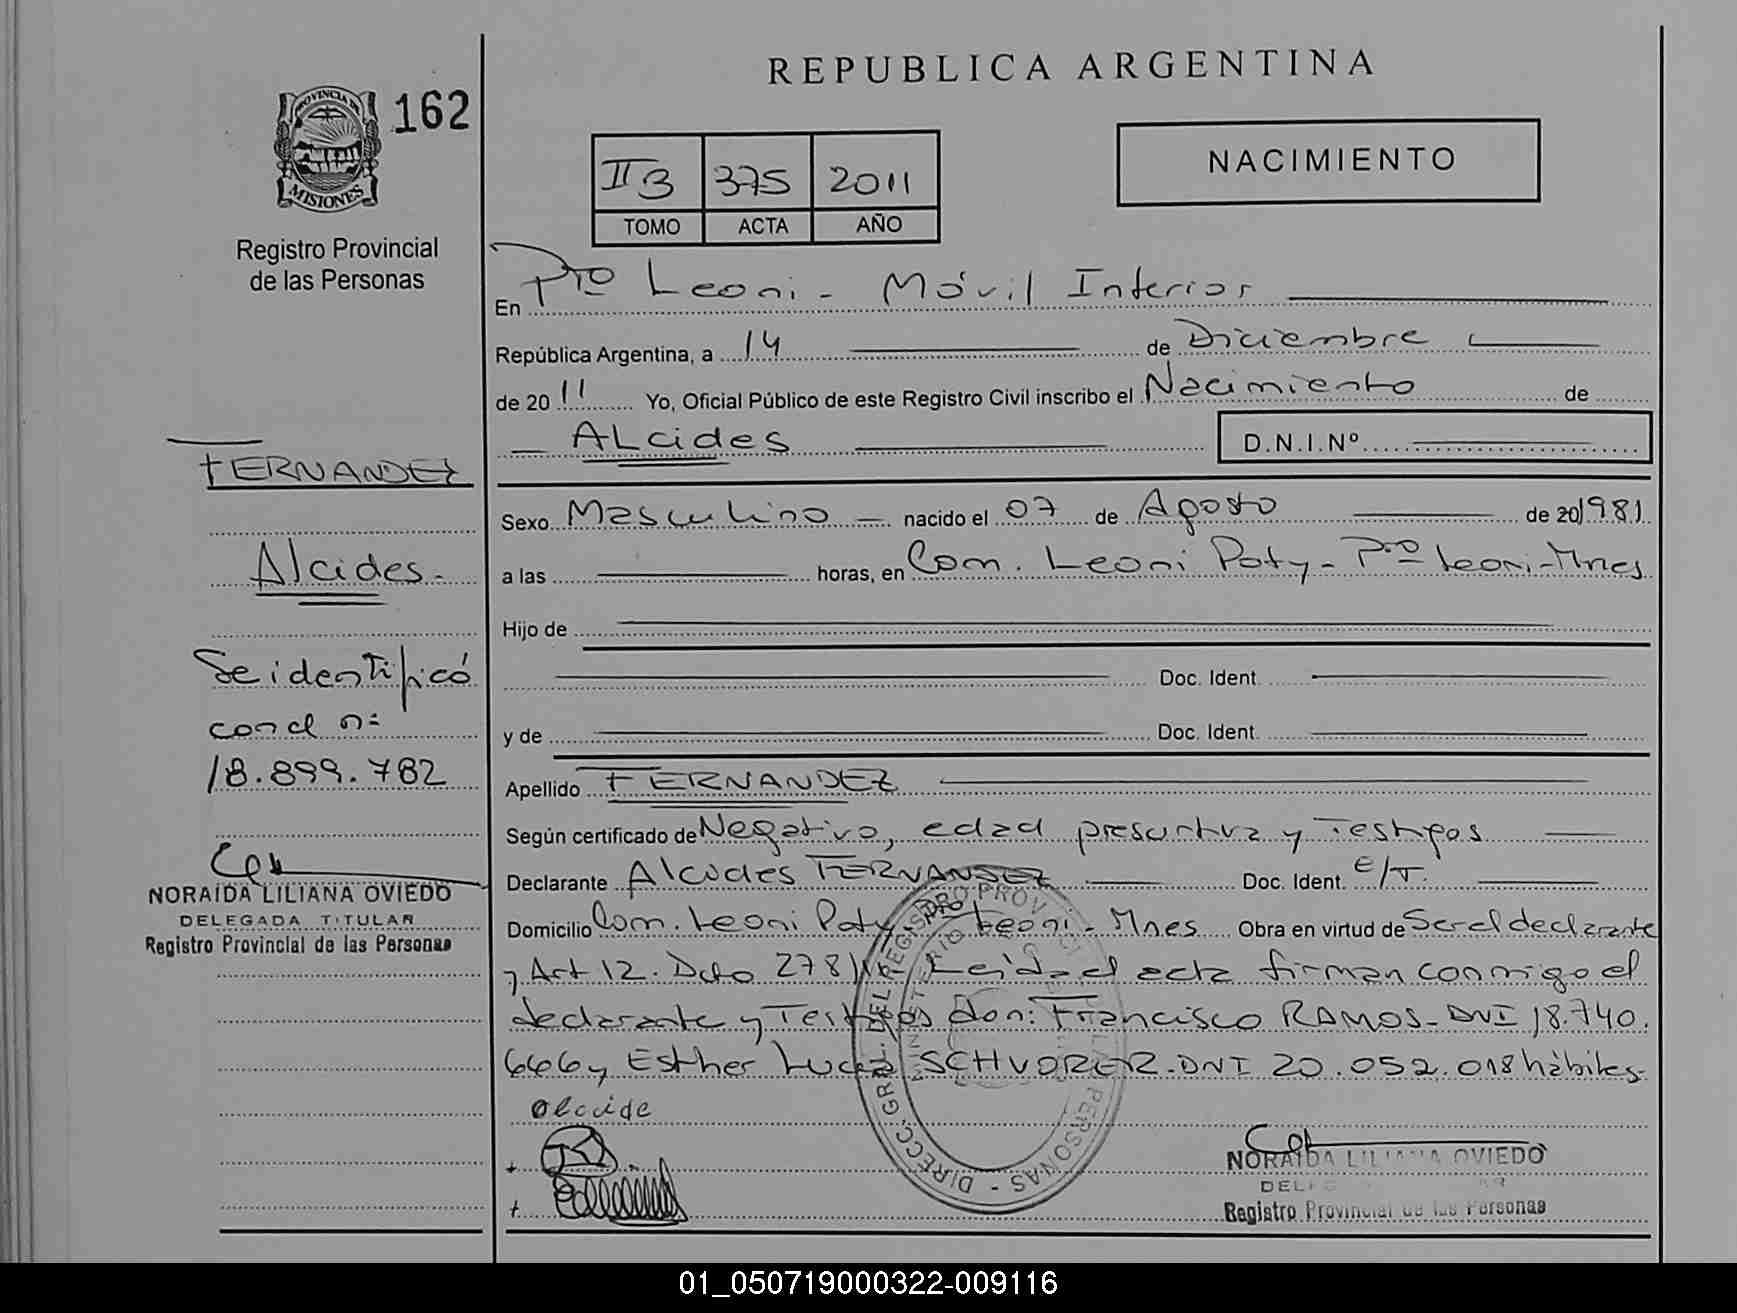 REPUBLICA ARGENTINA
PROVINCIA DE
MISIONES
162
Registro Provincial
de las Personas
II 3 375 2011
TOMO ACTA AÑO
NACIMIENTO
En Pto Leoni - Móvil Interior
República Argentina, a 14 de Diciembre
de 2011 Yo, Oficial Público de este Registro Civil inscribo el Nacimiento de
ALcides D.N.I.Nº
FERNANDEZ
Alcides.-
Se identificó
con el nº
18.899.782
NORAIDA LILIANA OVIEDO
DELEGADA TITULAR
Registro Provincial de las Personas
Sexo Masculino nacido el 07 de Agosto de 20 1981
a las horas, en Com. Leoni Poty - Pto Leoni - Mnes
Hijo de
Doc. Ident.
y de Doc. Ident.
Apellido FERNANDEZ
Según certificado de Negativo, edad presuntiva y Testigos
Declarante Alcides FERNANDEZ Doc. Ident. E/T.
Domicilio Com. Leoni Poty Leoni - Mnes Obra en virtud de Ser el declarante
y Art 12. Dcto 278 Leida el acta firman conmigo el
declarante y Testigos don: Francisco RAMOS - DNI 18.740.
666 y Esther Lucia SCHVORER - DNI 20.052.018 hábiles.-
alcide
DIRECC. GRAL. DEL REGISTRO PROVINCIAL PERSONAS
MINISTERIO
NORAIDA LILIANA OVIEDO
Registro Provincial de las Personas
01_050719000322-009116